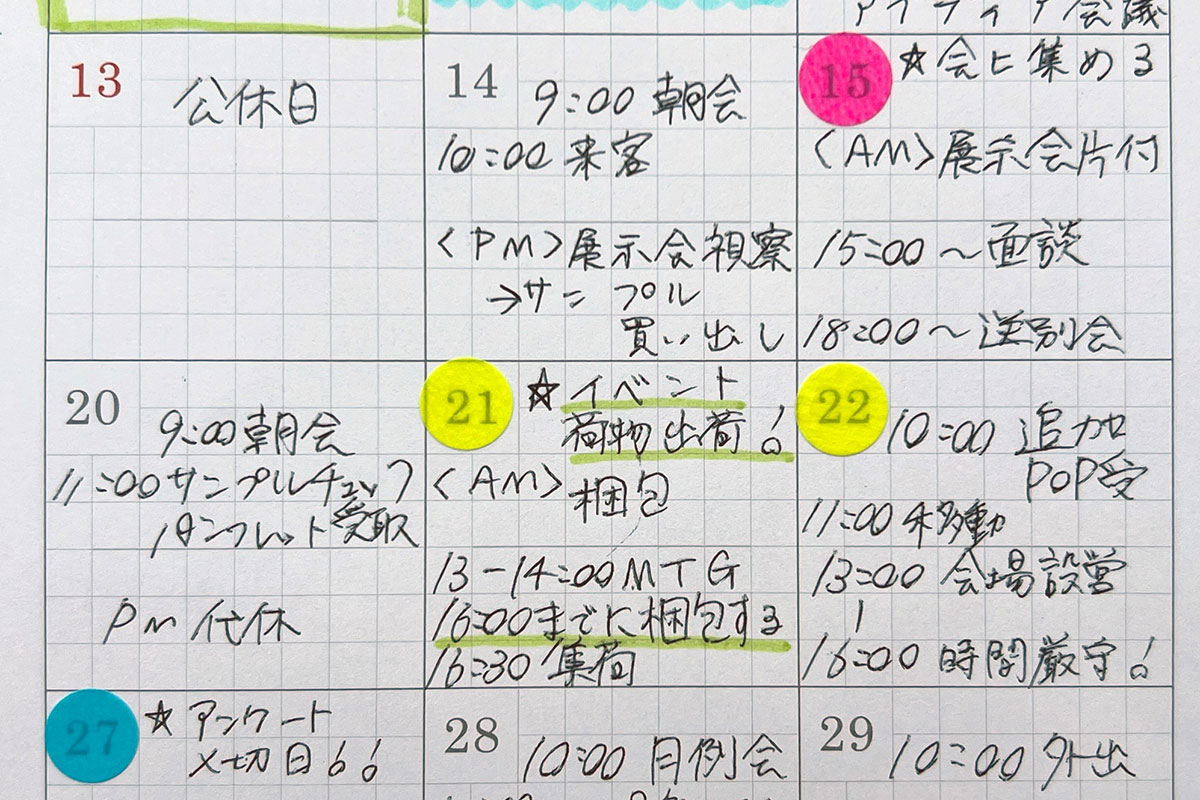 アイディア会議
13 公休日
14 9:00 朝会
10:00 来客
<PM>展示会視察
→サンプル
買い出し
15 ☆会ヒ集める
<AM>展示会片付
15:00～面談
18:00～送別会
20 9:00朝会
11:00サンプルチェック
パンフレット受取
PM 代休
21 ☆イベント
荷物出荷!
<AM>梱包
13-14:00MTG
16:00までに梱包する
16:30 集荷
22 10:00 追加
POP受
11:00 移動
13:00 会場設営
|
16:00 時間厳守!
27 ☆アンケート
〆切日!!
28 10:00 月例会
29 10:00 外出